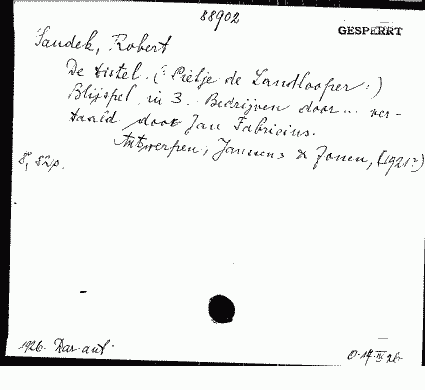 88902
GESPERRT
Saudek, Robert
De distel. (: Pietje de Landlooper :)
Blijspel in 3 Bedrijven door... ver-
taald door Jan Fabricius.
Antwerpen, Janssens & Zonen, (1921?)
8°, 82p.
1926. Dar. aut.
0. 17. III 26.